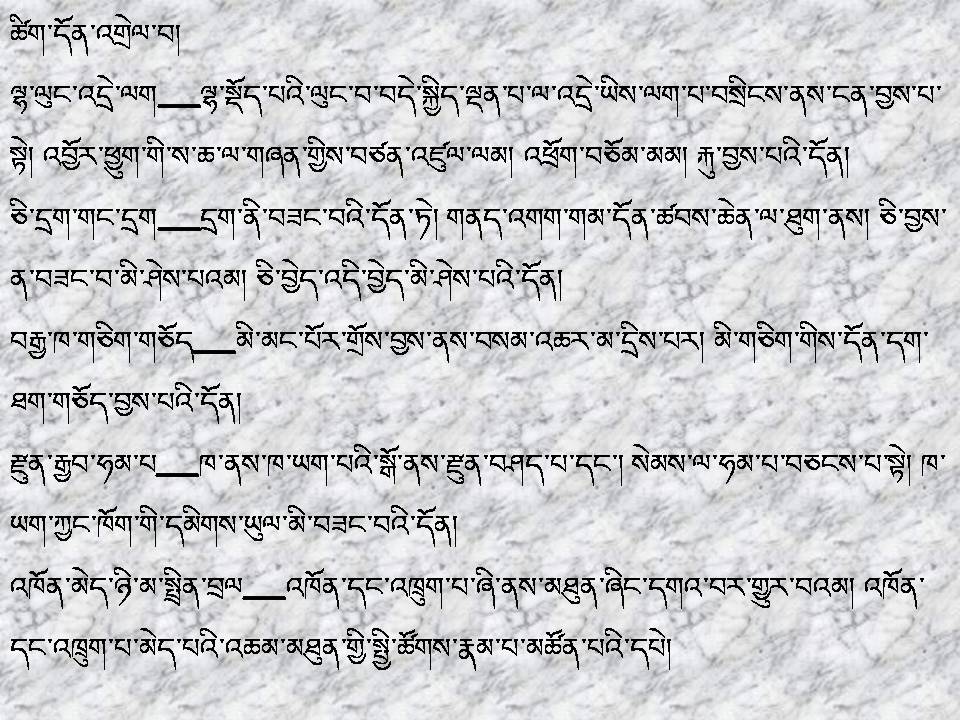 ཚིག་དོན་འགྲེལ་བ།
ལྷ་ལུང་འདྲེ་ལག___ལྷ་སྡོད་པའི་ལུང་བ་བདེ་སྐྱིད་ལྡན་པ་ལ་འདྲེ་ཡིས་ལག་པ་བསྲིངས་ནས་ངན་བྱས་པ་
སྟེ། འབྱོར་ཕྱུག་གི་ས་ཆ་ལ་གཞན་གྱིས་བཙན་འཛུལ་ལམ། འཕྲོག་བཅོམ་མམ། རྐུ་བྱས་པའི་དོན།
ཅི་དྲག་གང་དྲག___དྲག་ནི་བཟང་བའི་དོན་ཏེ། གནད་འགག་གམ་དོན་ཚབས་ཆེན་ལ་ཐུག་ནས། ཅི་བྱས་
ན་བཟང་བ་མི་ཤེས་པའམ། ཅི་བྱེད་འདི་བྱེད་མི་ཤེས་པའི་དོན།
བརྒྱ་ཁ་གཅིག་གཅོད___མི་མང་པོར་གྲོས་བྱས་ནས་བསམ་འཆར་མ་དྲིས་པར། མི་གཅིག་གིས་དོན་དག་
ཐག་གཅོད་བྱས་པའི་དོན།
རྫུན་རྒྱབ་ཧམ་པ___ཁ་ནས་ཁ་ཡག་པའི་སྒོ་ནས་རྫུན་བཤད་པ་དང་། སེམས་ལ་ཧམ་པ་བཅངས་པ་སྟེ། ཁ་
ཡག་ཀྱང་ཁོག་གི་དམིགས་ཡུལ་མི་བཟང་བའི་དོན།
འཁོན་མེད་ཉི་མ་སྤྲིན་བྲལ___འཁོན་དང་འཁྲུག་པ་ཞི་ནས་མཐུན་ཞིང་དགའ་བར་གྱུར་བའམ། འཁོན་
དང་འཁྲུག་པ་མེད་པའི་འཆམ་མཐུན་གྱི་སྤྱི་ཚོགས་རྣམ་པ་མཚོན་པའི་དཔེ།